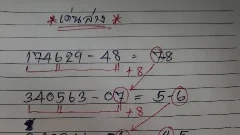 * เด่นล่าง *
174629 - 48 = 78
+8
340563 - 07 = 5-6
+8